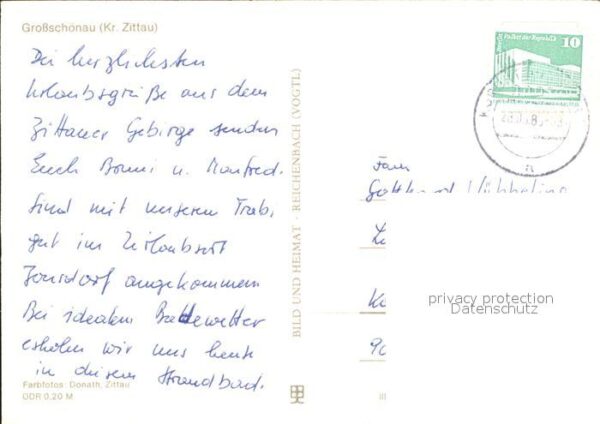 Großschönau (Kr. Zittau)
Die herzlichsten
Urlaubsgrüße aus dem
Zittauer Gebirge senden
Euch Bruni u. Manfred.
Sind mit unseren Trabi
gut im Urlaubsort
Jonsdorf angekommen
Bei idealem Badewetter
erholen wir uns heute
in diesem Strandbad.
Farbfotos: Donath, Zittau
DDR 0,20 M
BILD UND HEIMAT · REICHENBACH (VOGTL)
Palast der Republik
10
Fam
privacy protection
Datenschutz